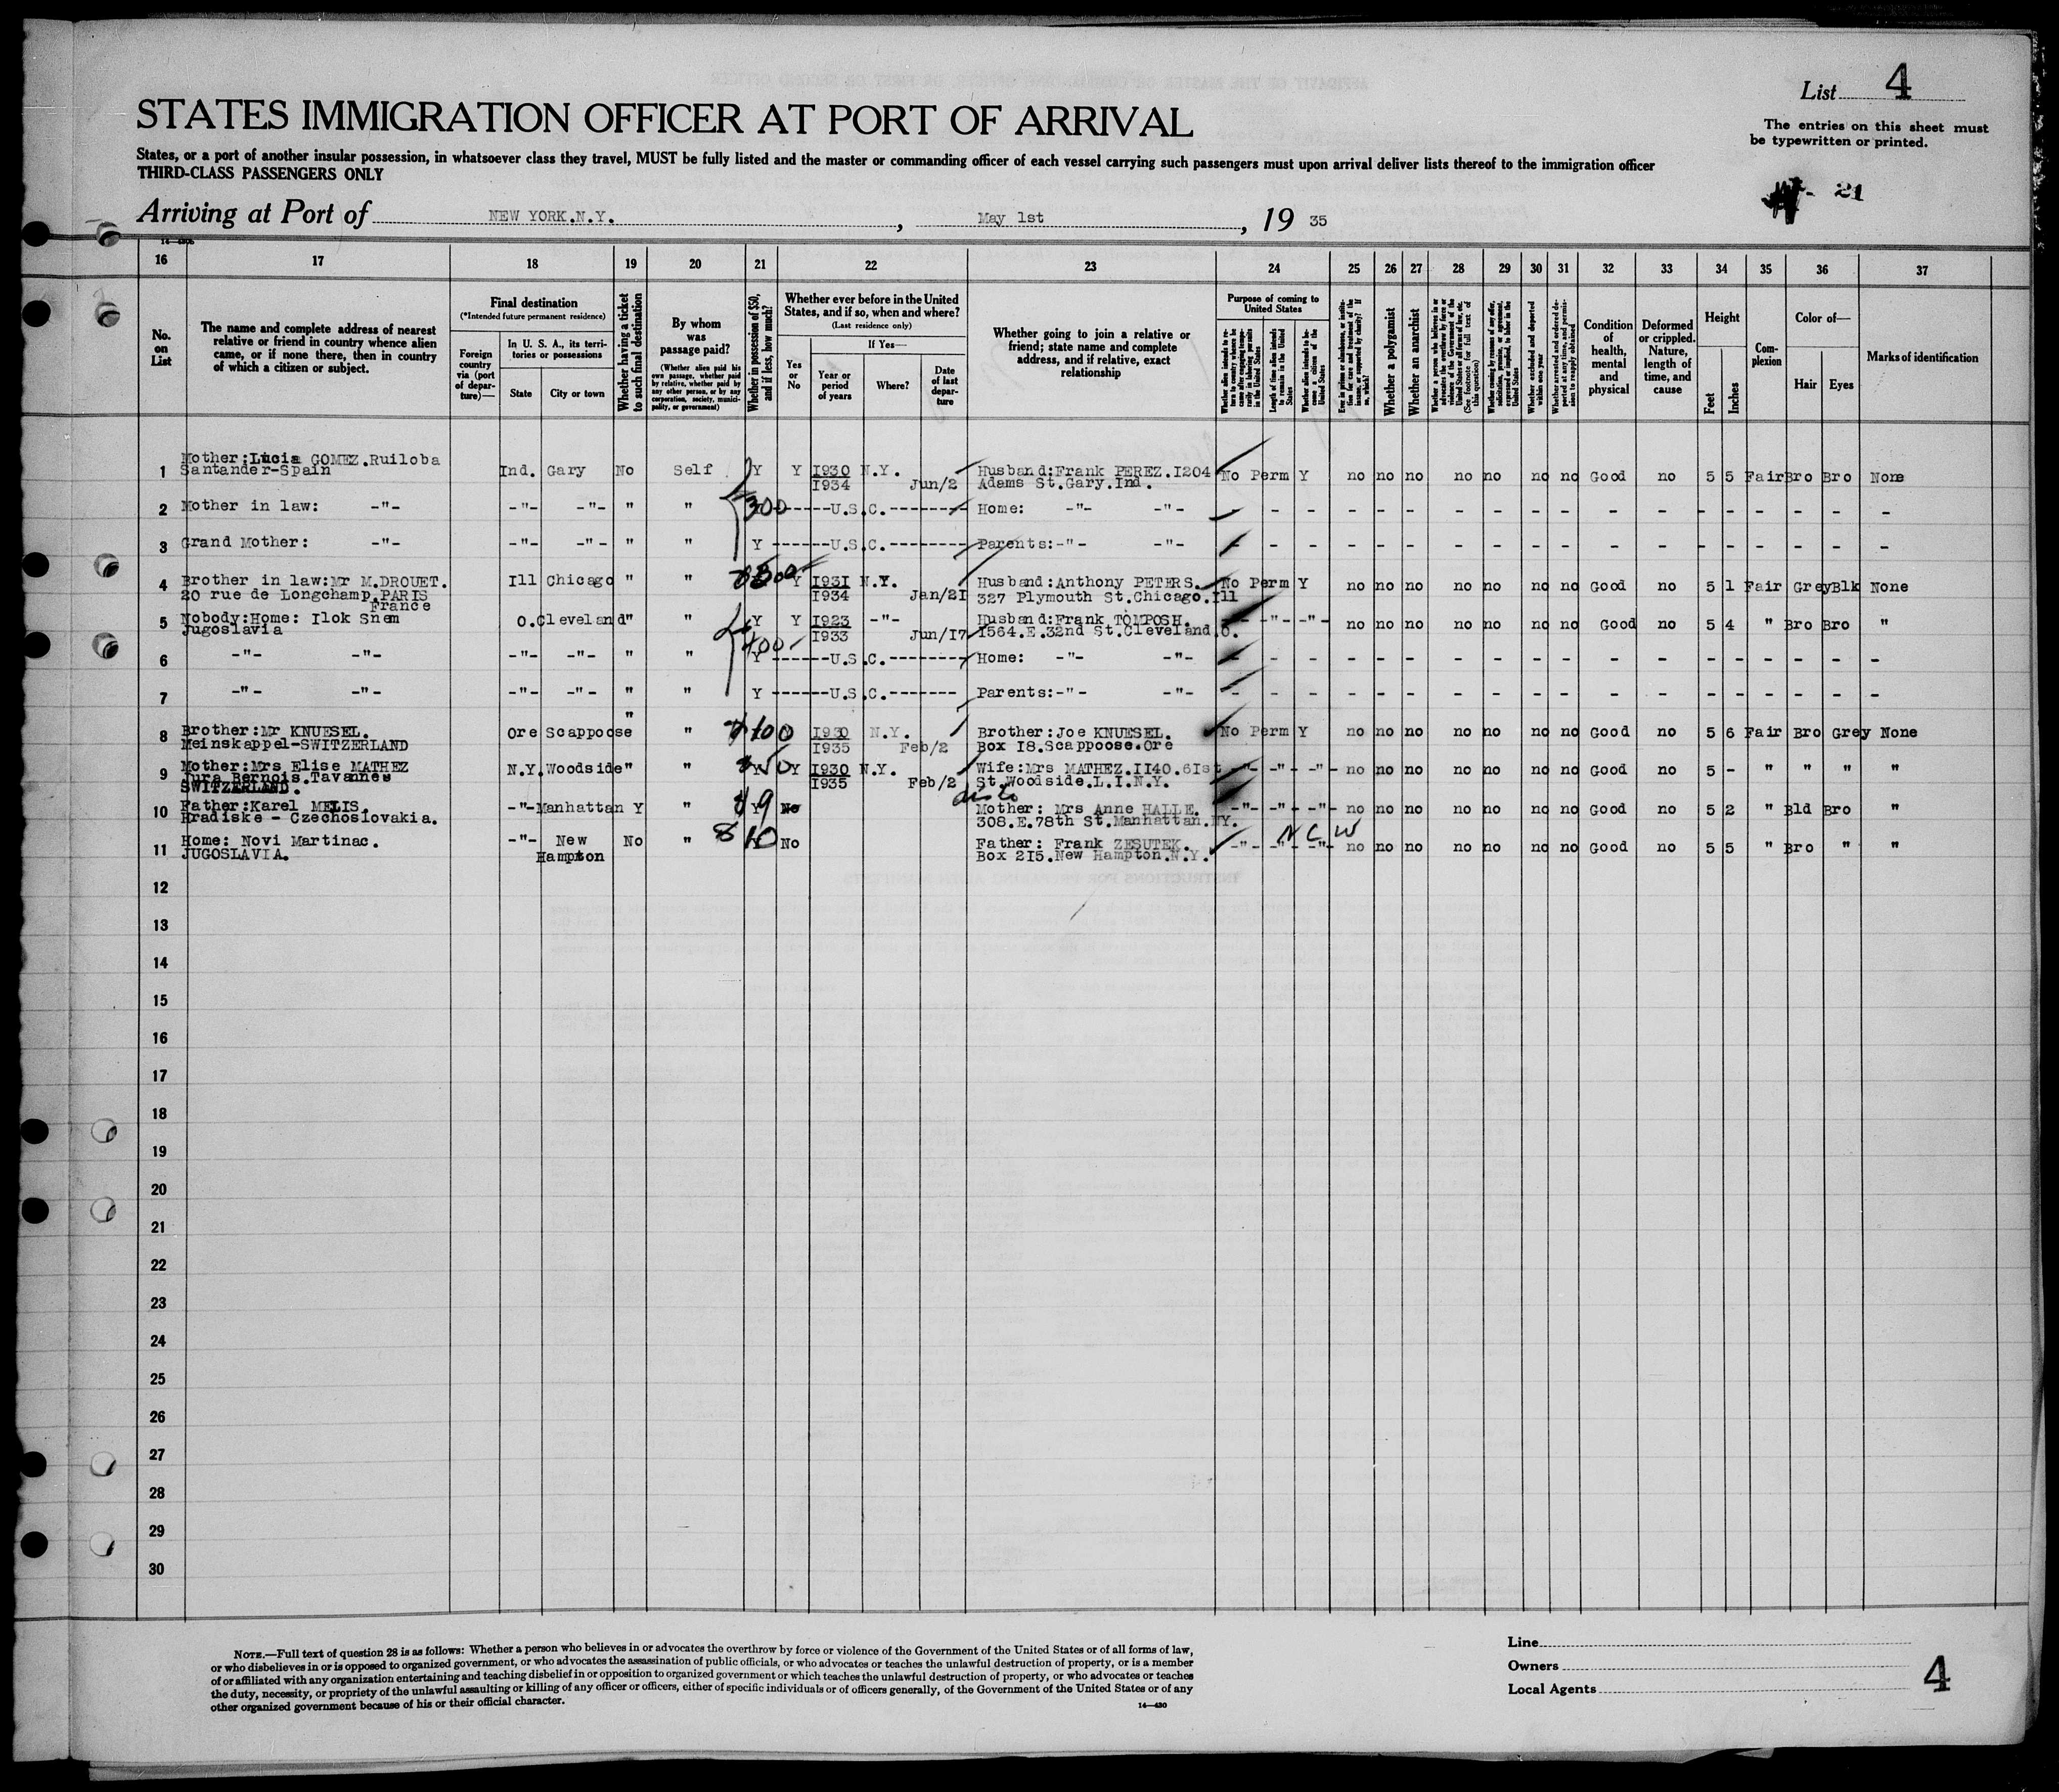 List 4
STATES IMMIGRATION OFFICER AT PORT OF ARRIVAL
The entries on this sheet must
be typewritten or printed.
States, or a port of another insular possession, in whatsoever class they travel, MUST be fully listed and the master or commanding officer of each vessel carrying such passengers must upon arrival deliver lists thereof to the immigration officer
THIRD-CLASS PASSENGERS ONLY
21
Arriving at Port of NEW YORK.N.Y. , May 1st , 19 35
16 17 18 19 20 21 22 23 24 25 26 27 28 29 30 31 32 33 34 35 36 37
No. on List
The name and complete address of nearest relative or friend in country whence alien came, or if none there, then in country of which a citizen or subject.
Final destination
(*Intended future permanent residence)
Foreign country via (port of departure)—
In U. S. A., its territories or possessions
State
City or town
Whether having a ticket to such final destination
By whom was passage paid?
(Whether alien paid his own passage, whether paid by relative, whether paid by any other person, or by any corporation, society, municipality, or government)
Whether in possession of $50, and if less, how much?
Whether ever before in the United States, and if so, when and where?
(Last residence only)
Yes or No
If Yes—
Year or period of years
Where?
Date of last departure
Whether going to join a relative or friend; state name and complete address, and if relative, exact relationship
Purpose of coming to United States
Length of time alien intends to remain in the United States
Whether alien intends to become a citizen of the United States
Whether a polygamist
Whether an anarchist
Condition of health, mental and physical
Deformed or crippled. Nature, length of time, and cause
Height
Feet
Inches
Complexion
Color of—
Hair
Eyes
Marks of identification
1 Mother:Lucia GOMEZ.Ruiloba Ind. Gary No Self Y Y 1930 N.Y. Husband:Frank PEREZ.1204 No Perm Y no no no no no no no Good no 5 5 Fair Bro Bro None
Santander-Spain 1934 Jun/2 Adams St.Gary.Ind.
2 Mother in law: -"- -"- -"- " " 300 ------U.S.C.------- Home: -"- -"- - - - - - - - - - - - - - - - - - -
3 Grand Mother: -"- -"- -"- " " Y ------U.S.C.------- Parents:-"- -"- - - - - - - - - - - - - - - - - - -
4 Brother in law:Mr M.DROUET. Ill Chicago " " Y 1931 N.Y. Husband:Anthony PETERS. No Perm Y no no no no no no no Good no 5 1 Fair Grey Blk None
20 rue de Longchamp.PARIS 1934 Jan/21 327 Plymouth St.Chicago.Ill
France
5 Nobody:Home: Ilok Snem O. Cleveland " " Y Y 1923 -"- Husband:Frank TOMPOSH. -"- -"- no no no no no no no Good no 5 4 " Bro Bro "
Jugoslavia 1933 Jun/17 1564.E.32nd St.Cleveland.O.
400
6 -"- -"- -"- -"- " " Y ------U.S.C.------- Home: -"- -"- - - - - - - - - - - - - - - - - - -
7 -"- -"- -"- -"- " " Y ------U.S.C.------- Parents:-"- -"- - - - - - - - - - - - - - - - - - -
8 Brother:Mr KNUESEL. Ore Scappoose " " 100 1930 N.Y. Brother:Joe KNUESEL. No Perm Y no no no no no no no Good no 5 6 Fair Bro Grey None
Meinskappel-SWITZERLAND 1935 Feb/2 Box 18.Scappoose.Ore
9 Mother:Mrs Elise MATHEZ N.Y. Woodside " " 50 Y 1930 N.Y. Wife:Mrs MATHEZ.1140.61st -"- -"- -"- no no no no no no no Good no 5 - " " " "
Jura Bernois.Tavannes 1935 Feb/2 St.Woodside.L.I.N.Y.
SWITZERLAND.
10 Father:Karel MELIS. -"- Manhattan Y " 9 No Mother: Mrs Anne HALLE. -"- -"- -"- no no no no no no no Good no 5 2 " Bld Bro "
Hradiske - Czechoslovakia. 308.E.78th St.Manhattan.NY.
11 Home: Novi Martinac. -"- New No " 10 No Father: Frank ZESUTEK. -"- -"- -"- no no no no no no no Good no 5 5 " Bro " "
JUGOSLAVIA. Hampton Box 215.New Hampton.N.Y.
12
13
14
15
16
17
18
19
20
21
22
23
24
25
26
27
28
29
30
NOTE.—Full text of question 28 is as follows: Whether a person who believes in or advocates the overthrow by force or violence of the Government of the United States or of all forms of law,
or who disbelieves in or is opposed to organized government, or who advocates the assassination of public officials, or who advocates or teaches the unlawful destruction of property, or is a member
of or affiliated with any organization entertaining and teaching disbelief in or opposition to organized government or which teaches the unlawful destruction of property, or who advocates or teaches
the duty, necessity, or propriety of the unlawful assaulting or killing of any officer or officers, either of specific individuals or of officers generally, of the Government of the United States or of any
other organized government because of his or their official character.
14—430
Line
Owners
Local Agents
4